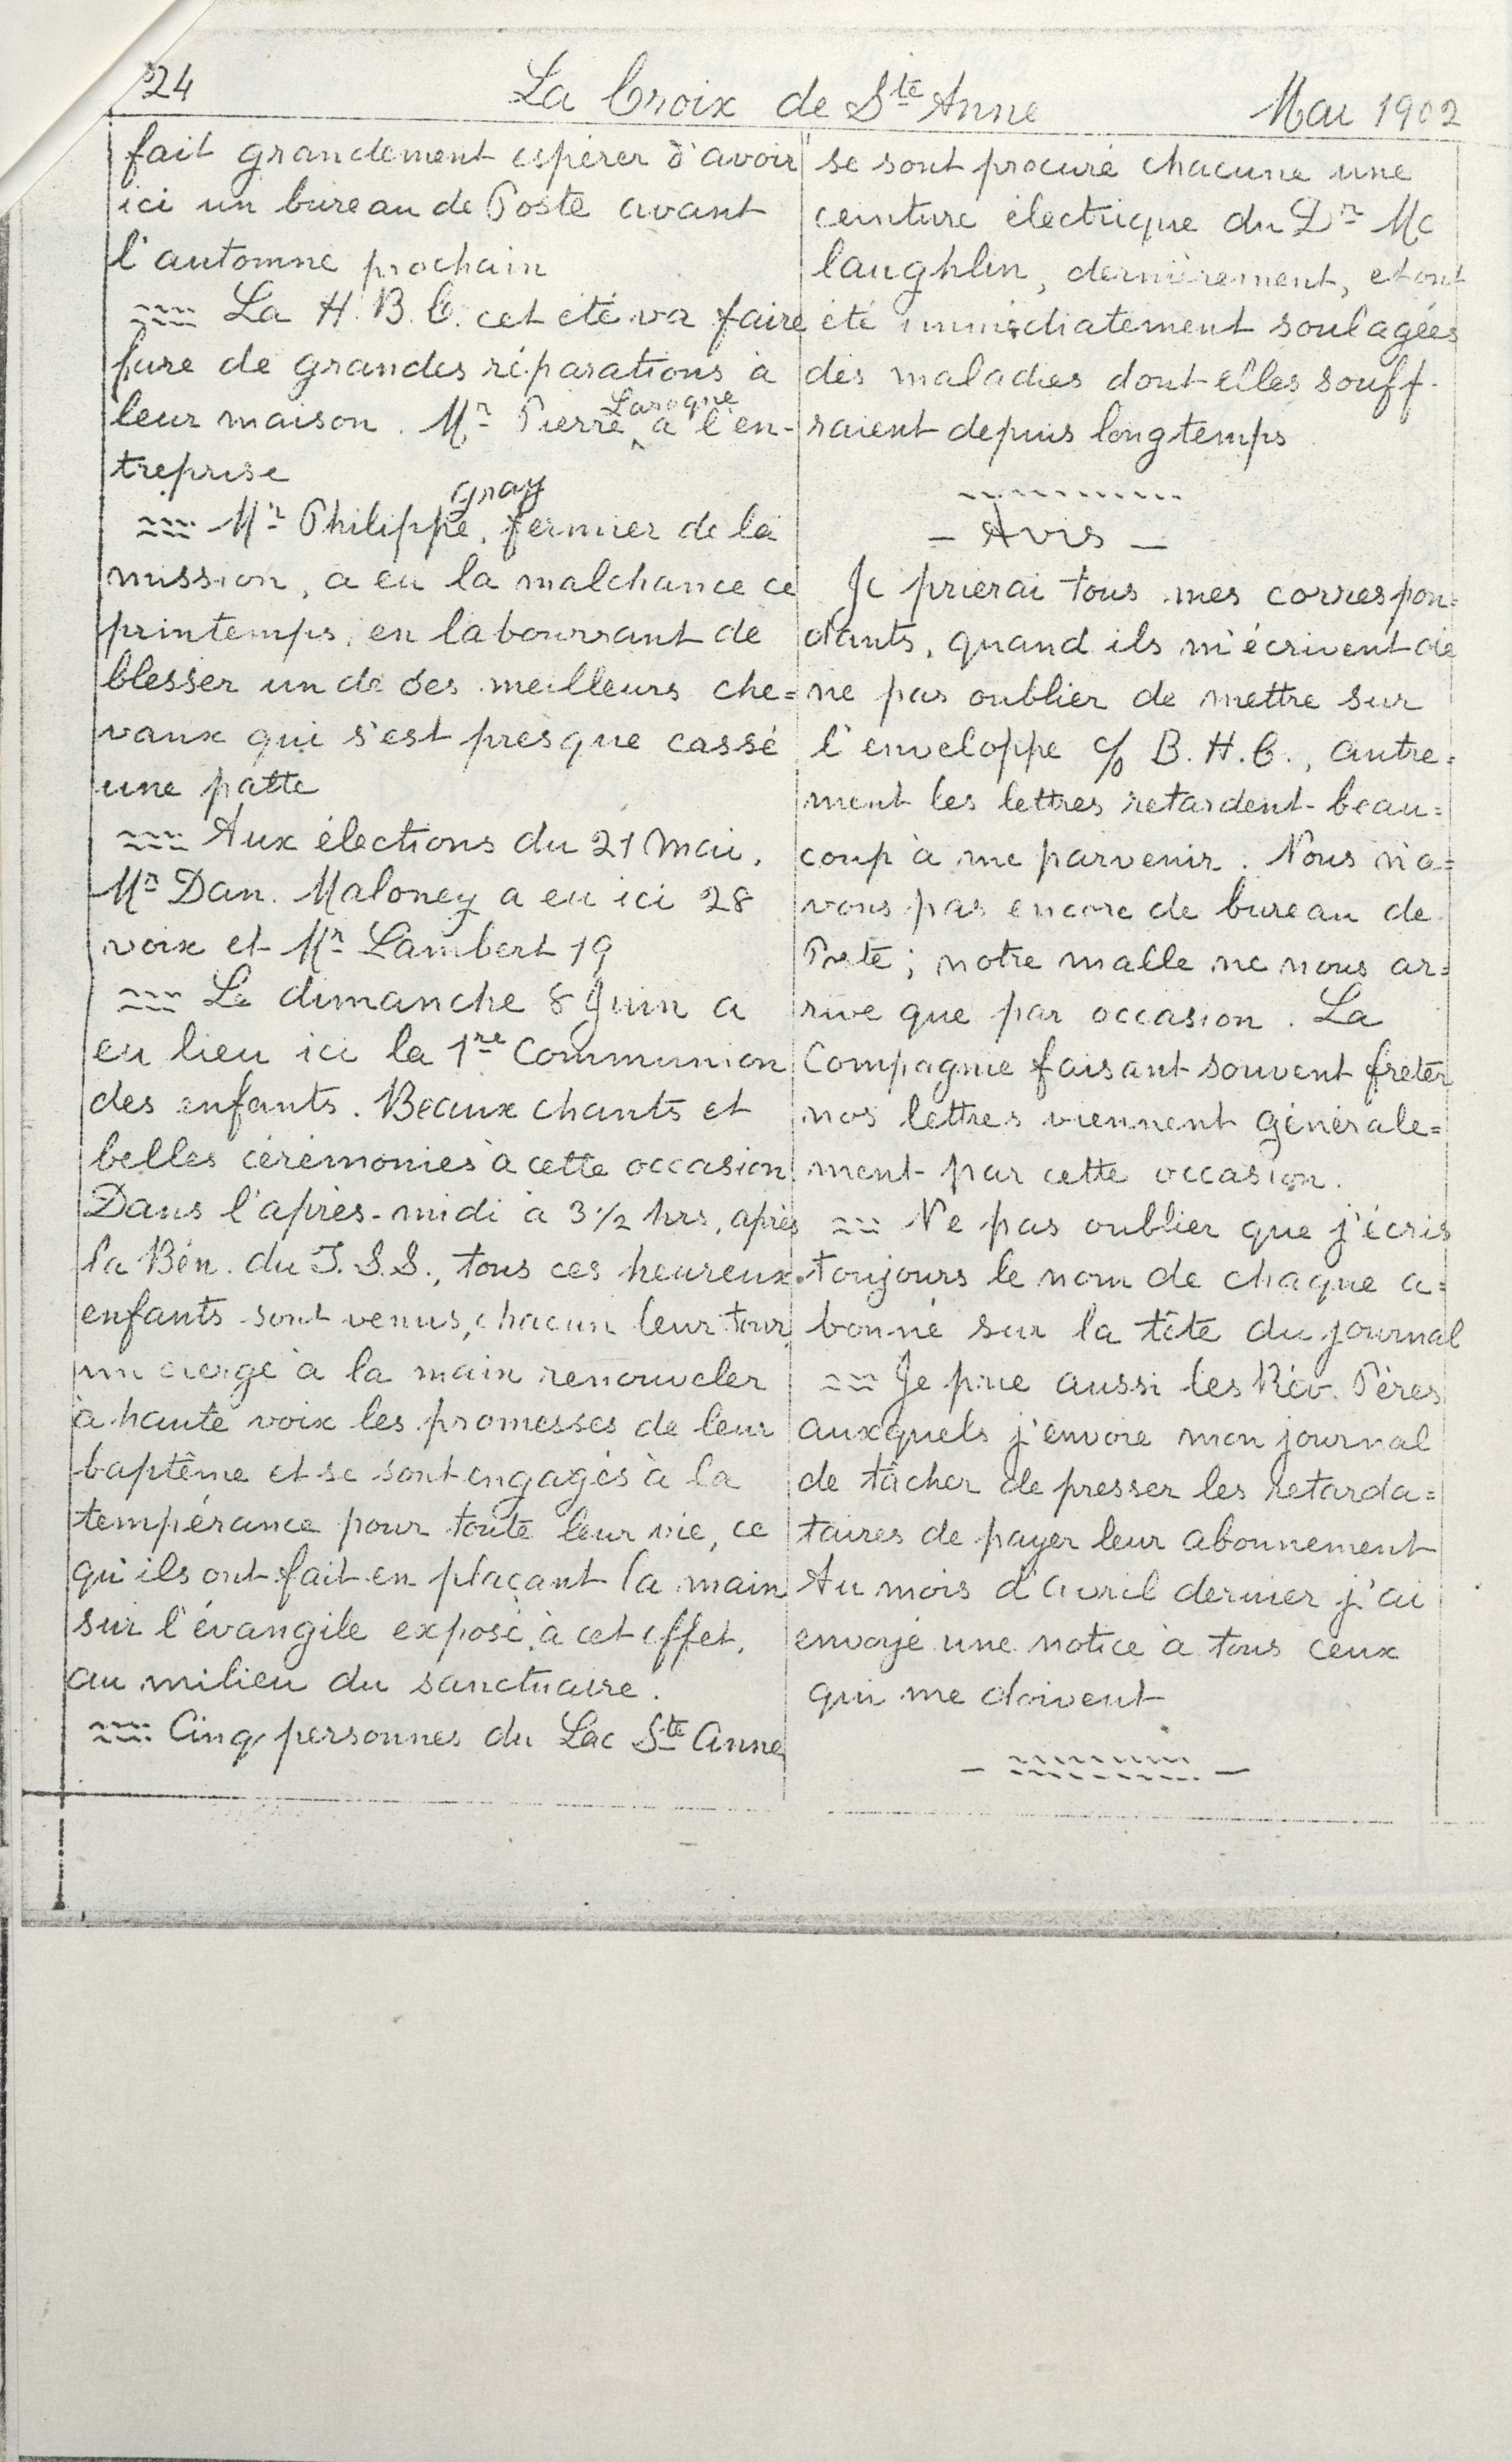 24
La Croix de Ste Anne
Mai 1902
fait grandement espérer d'avoir
ici un bureau de Poste avant
l'automne prochain
La H. B. C. cet été va faire
faire de grandes réparations à
leur maison. Mr Pierre Laroque a l'en-
treprise
Mr Philippe Gray, fermier de la
mission, a eu la malchance ce
printemps, en labourrant de
blesser un de ses meilleurs che=
vaux qui s'est presque cassé
une patte
Aux élections du 21 Mai,
Mr Dan. Maloney a eu ici 28
voix et Mr Lambert 19
Le dimanche 8 Juin a
eu lieu ici la 1re Communion
des enfants. Beaux chants et
belles cérémonies à cette occasion.
Dans l'après-midi à 3 1/2 hrs, après
la Bén. du T. S. S., tous ces heureux
enfants sont venus, chacun leur tour,
un cierge à la main renouveler
à haute voix les promesses de leur
baptême et se sont engagés à la
tempérance pour toute leur vie, ce
qu'ils ont fait en plaçant la main
sur l'évangile exposé, à cet effet,
au milieu du sanctuaire.
Cinq personnes du Lac Ste Anne
se sont procuré chacune une
ceinture électrique du Dr Mc
laughlin, dernièrement, et ont
été immédiatement soulagées
des maladies dont elles souff-
raient depuis longtemps.
- Avis -
Je prierai tous mes correspon=
dants, quand ils m'écrivent de
ne pas oublier de mettre sur
l'enveloppe c/o B. H. C., autre=
ment les lettres retardent beau=
coup à me parvenir. Nous n'a=
vons pas encore de bureau de
Poste; notre malle ne nous ar=
rive que par occasion. La
Compagnie faisant souvent freter
nos lettres viennent générale=
ment par cette occasion.
Ne pas oublier que j'écris
toujours le nom de chaque a=
bonné sur la tête du journal
Je prie aussi les Rév. Pères
auxquels j'envoie mon journal
de tâcher de presser les retarda=
taires de payer leur abonnement
Au mois d'avril dernier j'ai
envoyé une notice à tous ceux
qui me doivent